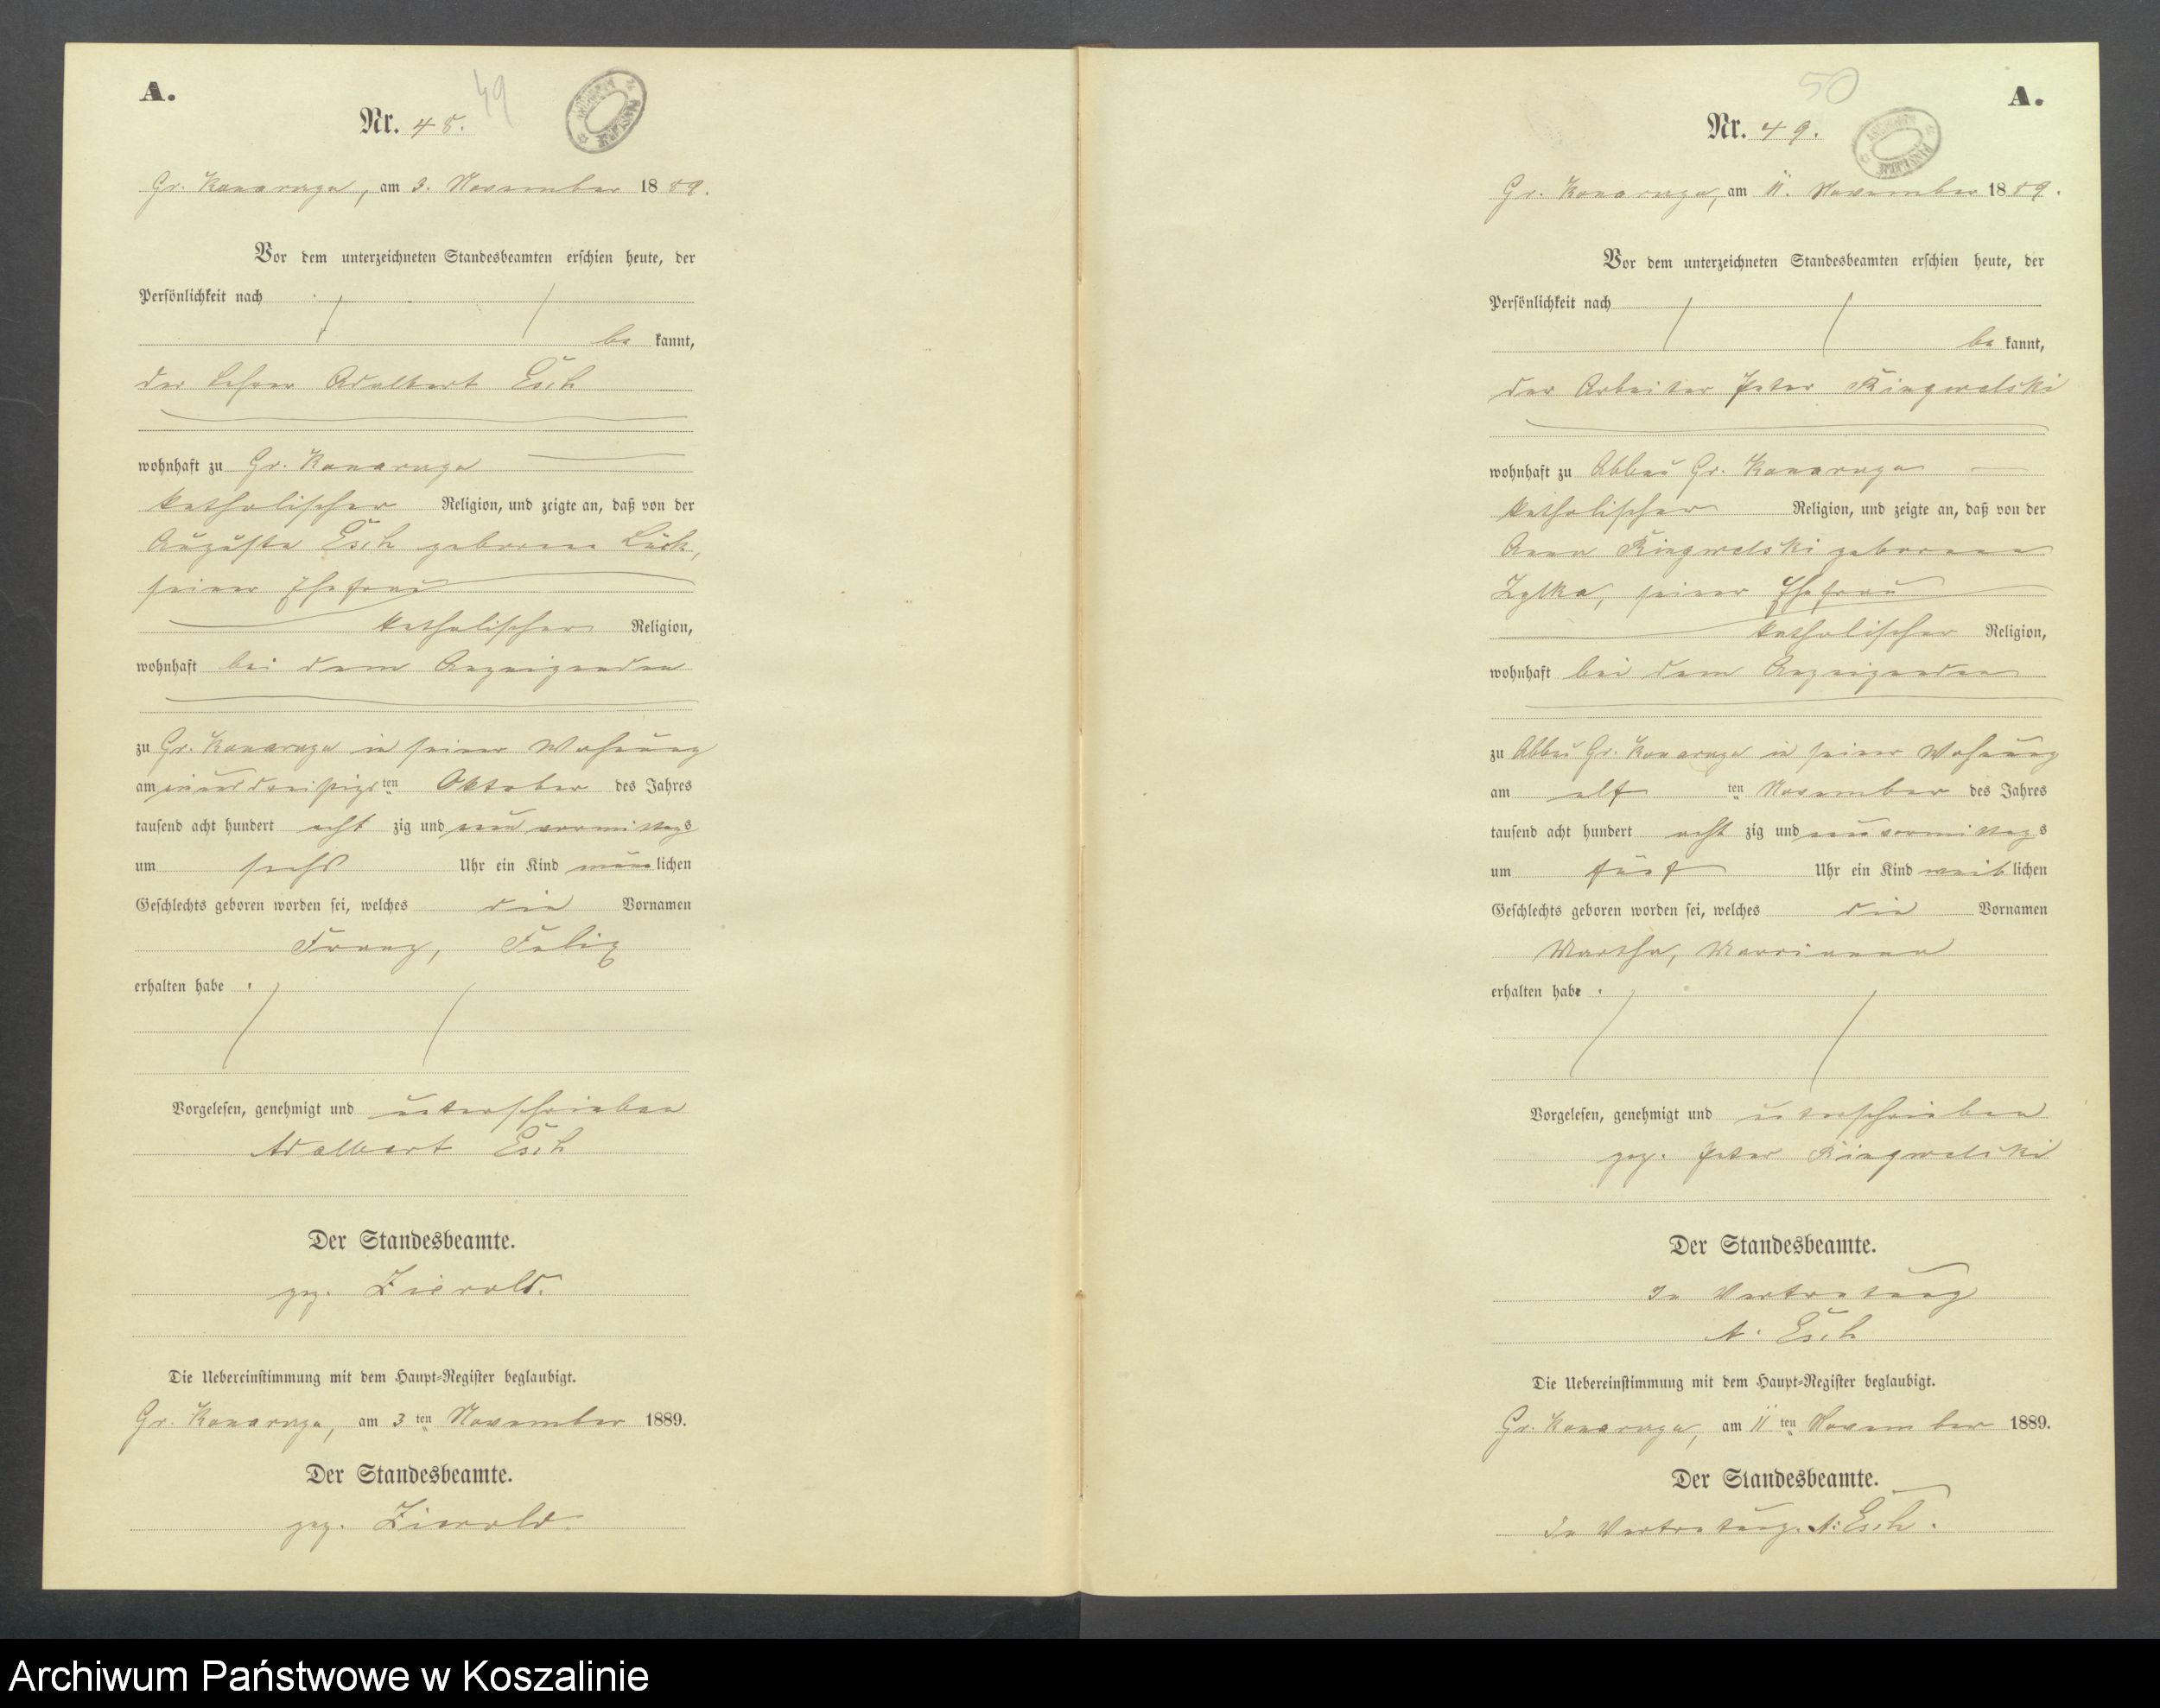 A.
49
Nr. 48.
Gr. Konarzyn, am 3. November 1889.
Vor dem unterzeichneten Standesbeamten erschien heute, der
Persönlichkeit nach
be kannt,
der Lehrer Adalbert Esch
wohnhaft zu Gr. Konarzyn
katholischer Religion, und zeigte an, daß von der
Auguste Esch geborene Lück,
seiner Ehefrau
katholischer Religion,
wohnhaft bei dem Anzeigenden
zu Gr. Konarzyn in seiner Wohnung
am einunddreißigsten Oktober des Jahres
tausend acht hundert acht zig und neun vormittags
um sechs Uhr ein Kind männlichen
Geschlechts geboren worden sei, welches die Vornamen
Franz, Felix
erhalten habe.
Vorgelesen, genehmigt und unterschrieben
Adalbert Esch
Der Standesbeamte.
gez. Zierold.
Die Uebereinstimmung mit dem Haupt-Register beglaubigt.
Gr. Konarzyn, am 3ten November 1889.
Der Standesbeamte.
gez. Zierold.
50
A.
Nr. 49.
Gr. Konarzyn, am 11. November 1889.
Vor dem unterzeichneten Standesbeamten erschien heute, der
Persönlichkeit nach
be kannt,
der Arbeiter Peter Ringwelski
wohnhaft zu Abbau Gr. Konarzyn
katholischer Religion, und zeigte an, daß von der
Anna Ringwelski geborene
Zylka, seiner Ehefrau
katholischer Religion,
wohnhaft bei dem Anzeigenden
zu Abbau Gr. Konarzyn in seiner Wohnung
am elf ten November des Jahres
tausend acht hundert acht zig und neun vormittags
um fünf Uhr ein Kind weiblichen
Geschlechts geboren worden sei, welches die Vornamen
Martha, Marrianna
erhalten habe.
Vorgelesen, genehmigt und unterschrieben
gez. Peter Ringwelski
Der Standesbeamte.
In Vertretung
A. Esch
Die Uebereinstimmung mit dem Haupt-Register beglaubigt.
Gr. Konarzyn, am 11ten November 1889.
Der Standesbeamte.
In Vertretung. A. Esch.
Archiwum Państwowe w Koszalinie